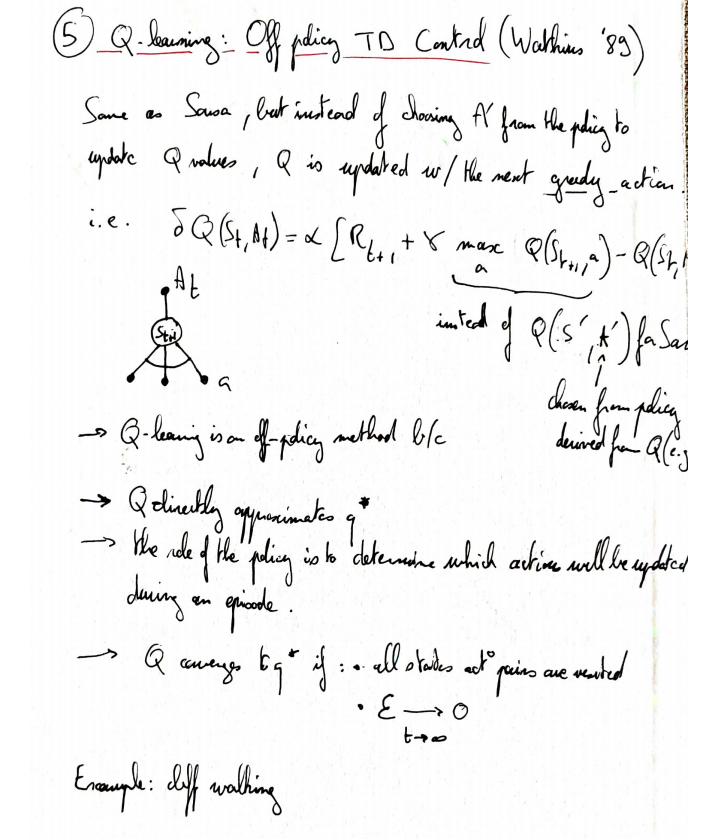 ⑤ Q-learning: Off policy TD Control (Watkins '89)
Same as Sarsa, but instead of choosing A' from the policy to
update Q values, Q is updated w/ the next greedy action.
i.e. δQ(St, At) = α [R_{t+1} + γ max_a Q(S_{t+1}, a) - Q(St,
At
instead of Q(S', A') for Sar
S_{t+1}
a
chosen from policy
derived from Q (e.g
→ Q-learning is an off-policy method b/c
→ Q directly approximates q*
→ the role of the policy is to determine which actions will be updated
during an episode.
→ Q converges to q* if : • all states act° pairs are visited
• ε → 0
t→∞
Example: cliff walking